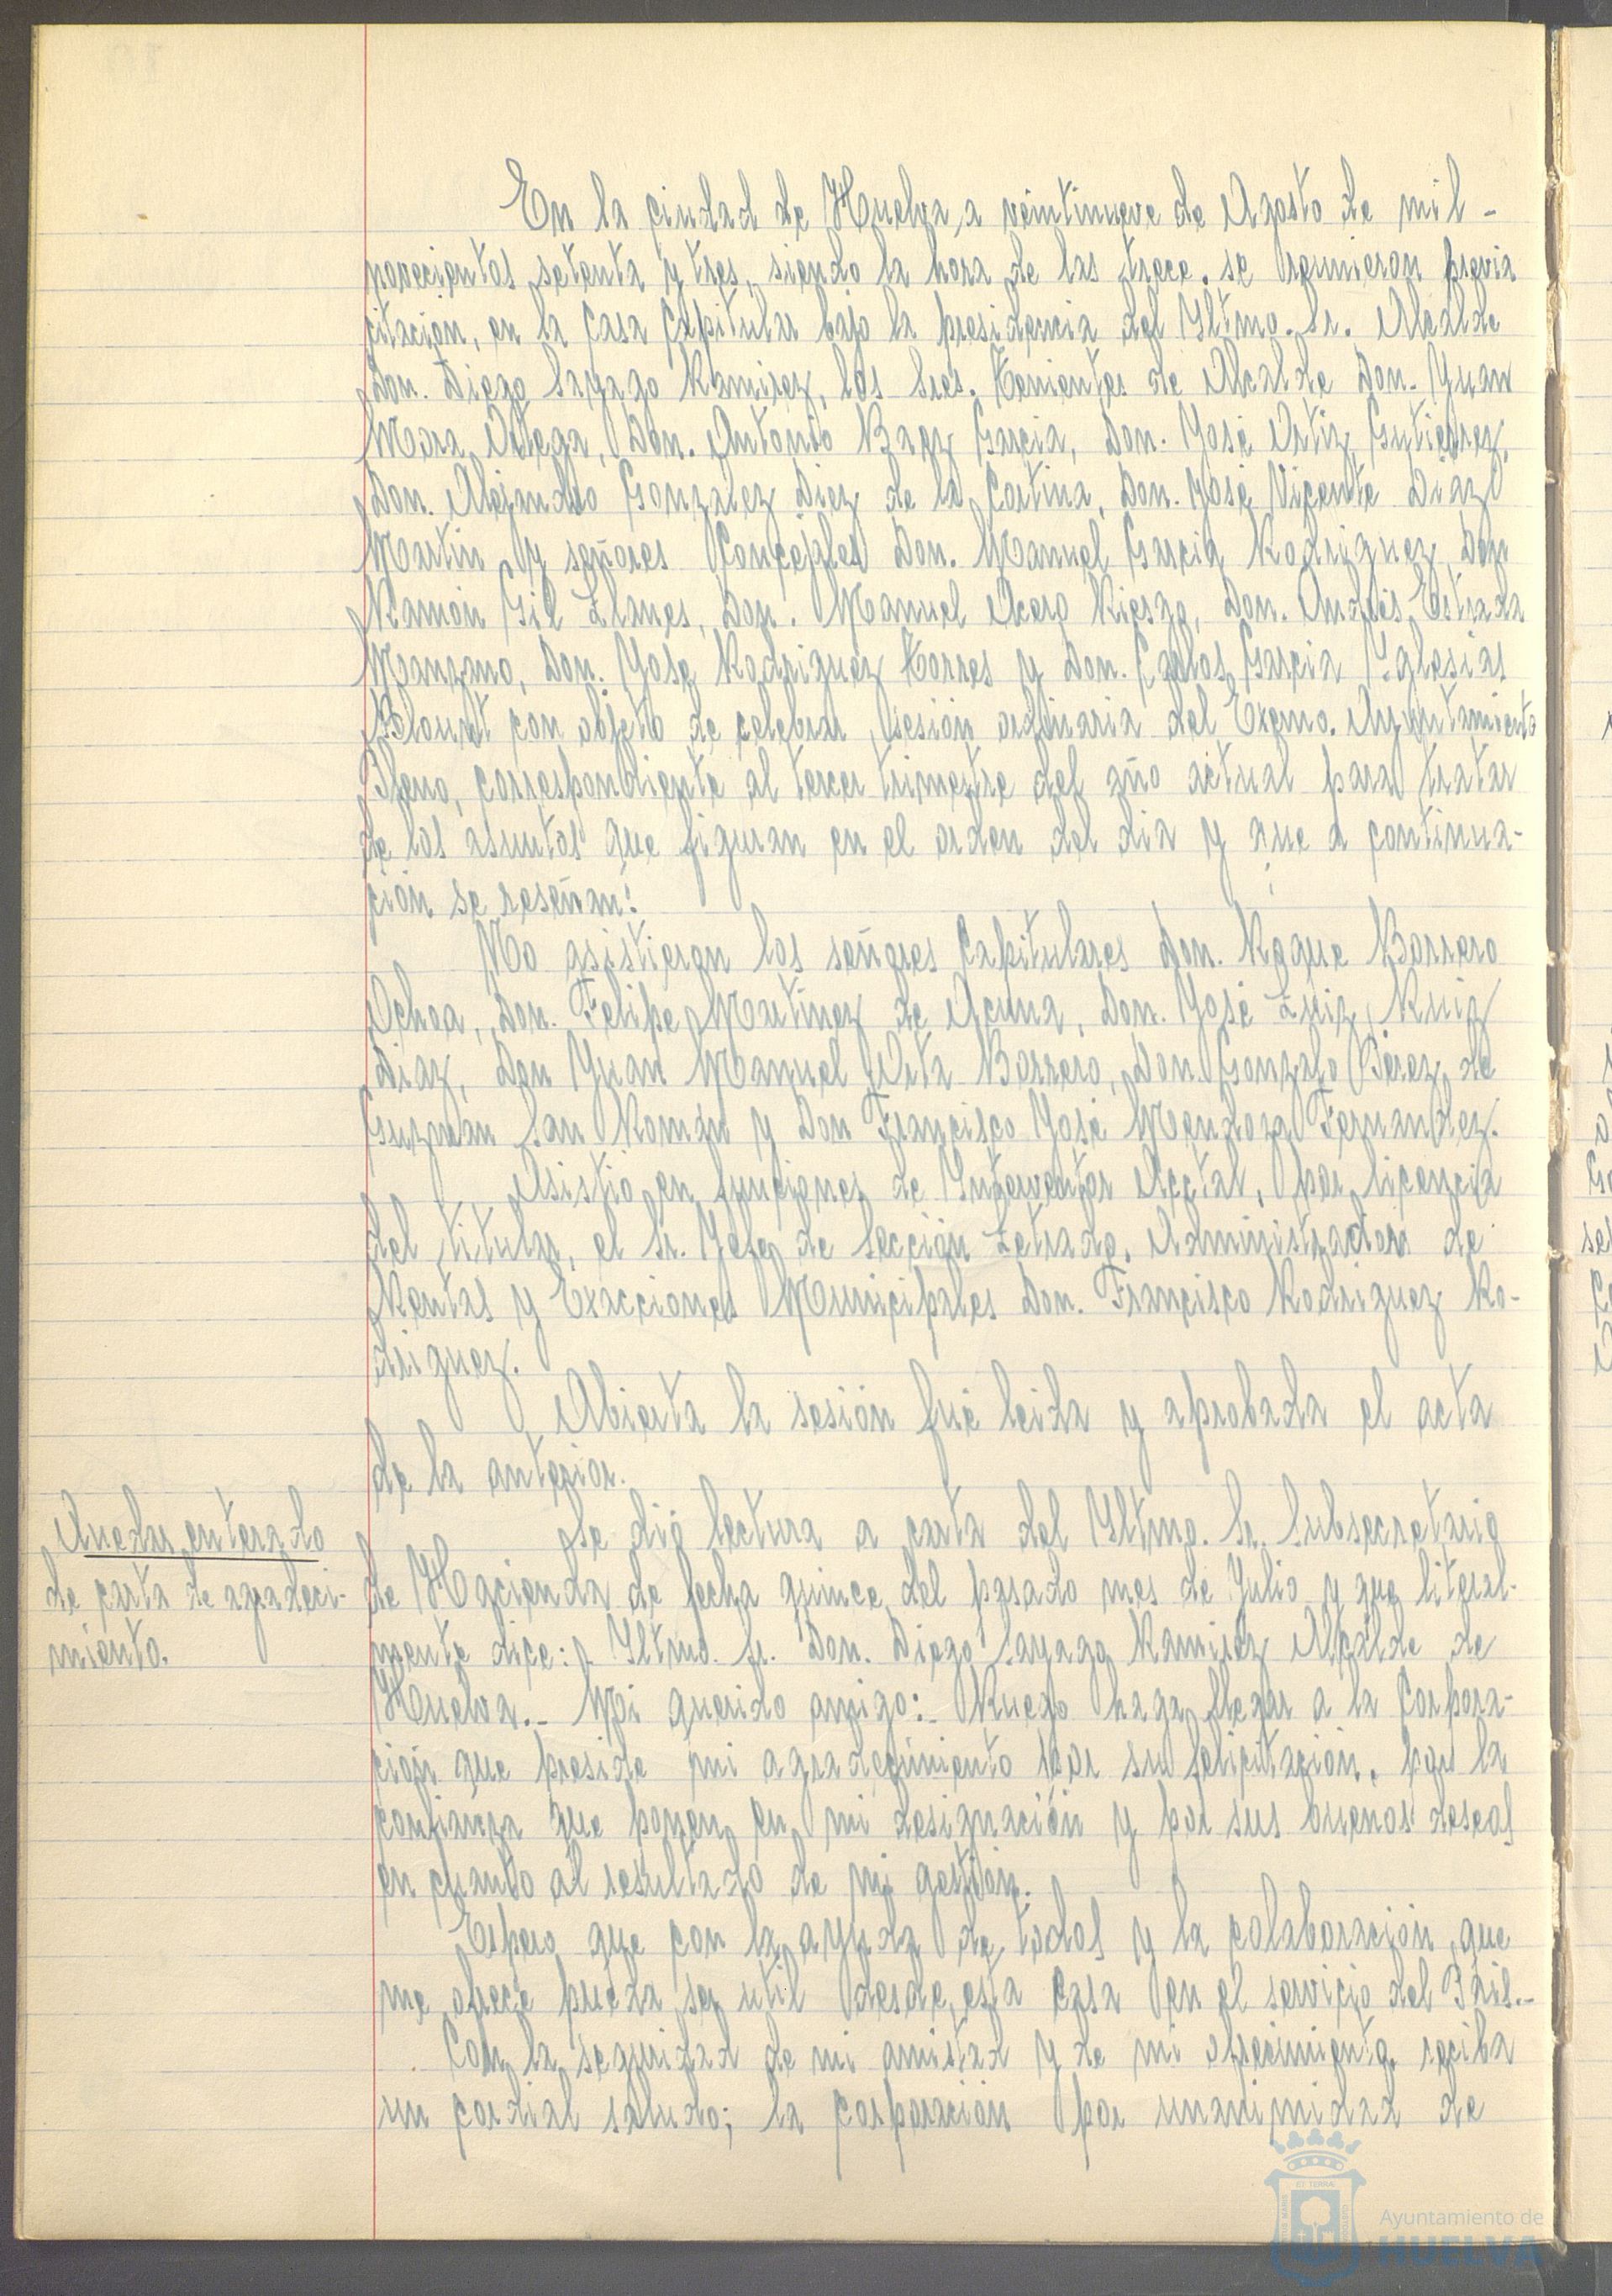 En la ciudad de Huelva, a veintinueve de Agosto de mil-
novecientos setenta y tres, siendo la hora de las trece, se reunieron previa
citación, en la Casa Capitular bajo la presidencia del Yltmo. Sr. Alcalde
Don. Diego Sayago Ramirez, los Sres. Tenientes de Alcalde Don. Juan
Mora Ortega, Don. Antonio Baez Garcia, Don. José Ortiz Gutierrez,
Don. Alejandro Gonzalez Diez de la Cortina, Don. José Vicente Diaz
Martin y señores Concejales Don. Manuel Garcia Rodriguez, Don
Ramón Gil Llanes, Don. Manuel Acero Riesgo, Don. Andrés Estrada
Manzano, Don. Jose Rodriguez Torres y Don. Carlos Garcia Yglesias
Blount con objeto de celebrar sesión ordinaria del Excmo. Ayuntamiento
Pleno, correspondiente al tercer trimestre del año actual para tratar
de los asuntos que figuran en el orden del dia y que a continua-
ción se reseñan:
No asistieron los señores Capitulares Don. Roque Borrero
Ochoa, Don. Felipe Martinez de Acuna, Don. José Luiz Ruiz
Diaz, Don Juan Manuel Orta Borrero, Don. Gonzalo Pérez de
Guzman San Román y Don Francisco José Mendoza Fernandez.
Asistió en funciones de Interventor Acctal, por licencia
del titular, el Sr. Jefe de Sección Letrado, Administrador de
Rentas y Exacciones Municipales Don. Francisco Rodriguez Ro-
driguez.
Abierta la sesión fué leida y aprobada el acta
de la anterior.
Quedar enterado
de carta de agradeci-
miento.
Se dió lectura a carta del Yltmo. Sr. Subsecretario
de Hacienda de fecha quince del pasado mes de Julio y que literal-
mente dice: Yltmo. Sr. Don. Diego Sayago Ramirez Alcalde de
Huelva.- Mi querido amigo:- Ruego haga llegar a la Corpora-
ción que preside mi agradecimiento por su felicitación, por la
confianza que ponen en mi designación y por sus buenos deseos
en cuanto al resultado de mi gestión.
Espero que con la ayuda de todos y la colaboración que
me ofrece pueda ser util desde esta Casa en el servicio del Pais.-
Con la seguridad de mi amistad y de mi ofrecimiento reciba
un cordial saludo; la corporación por unanimidad de
Ayuntamiento de
HUELVA